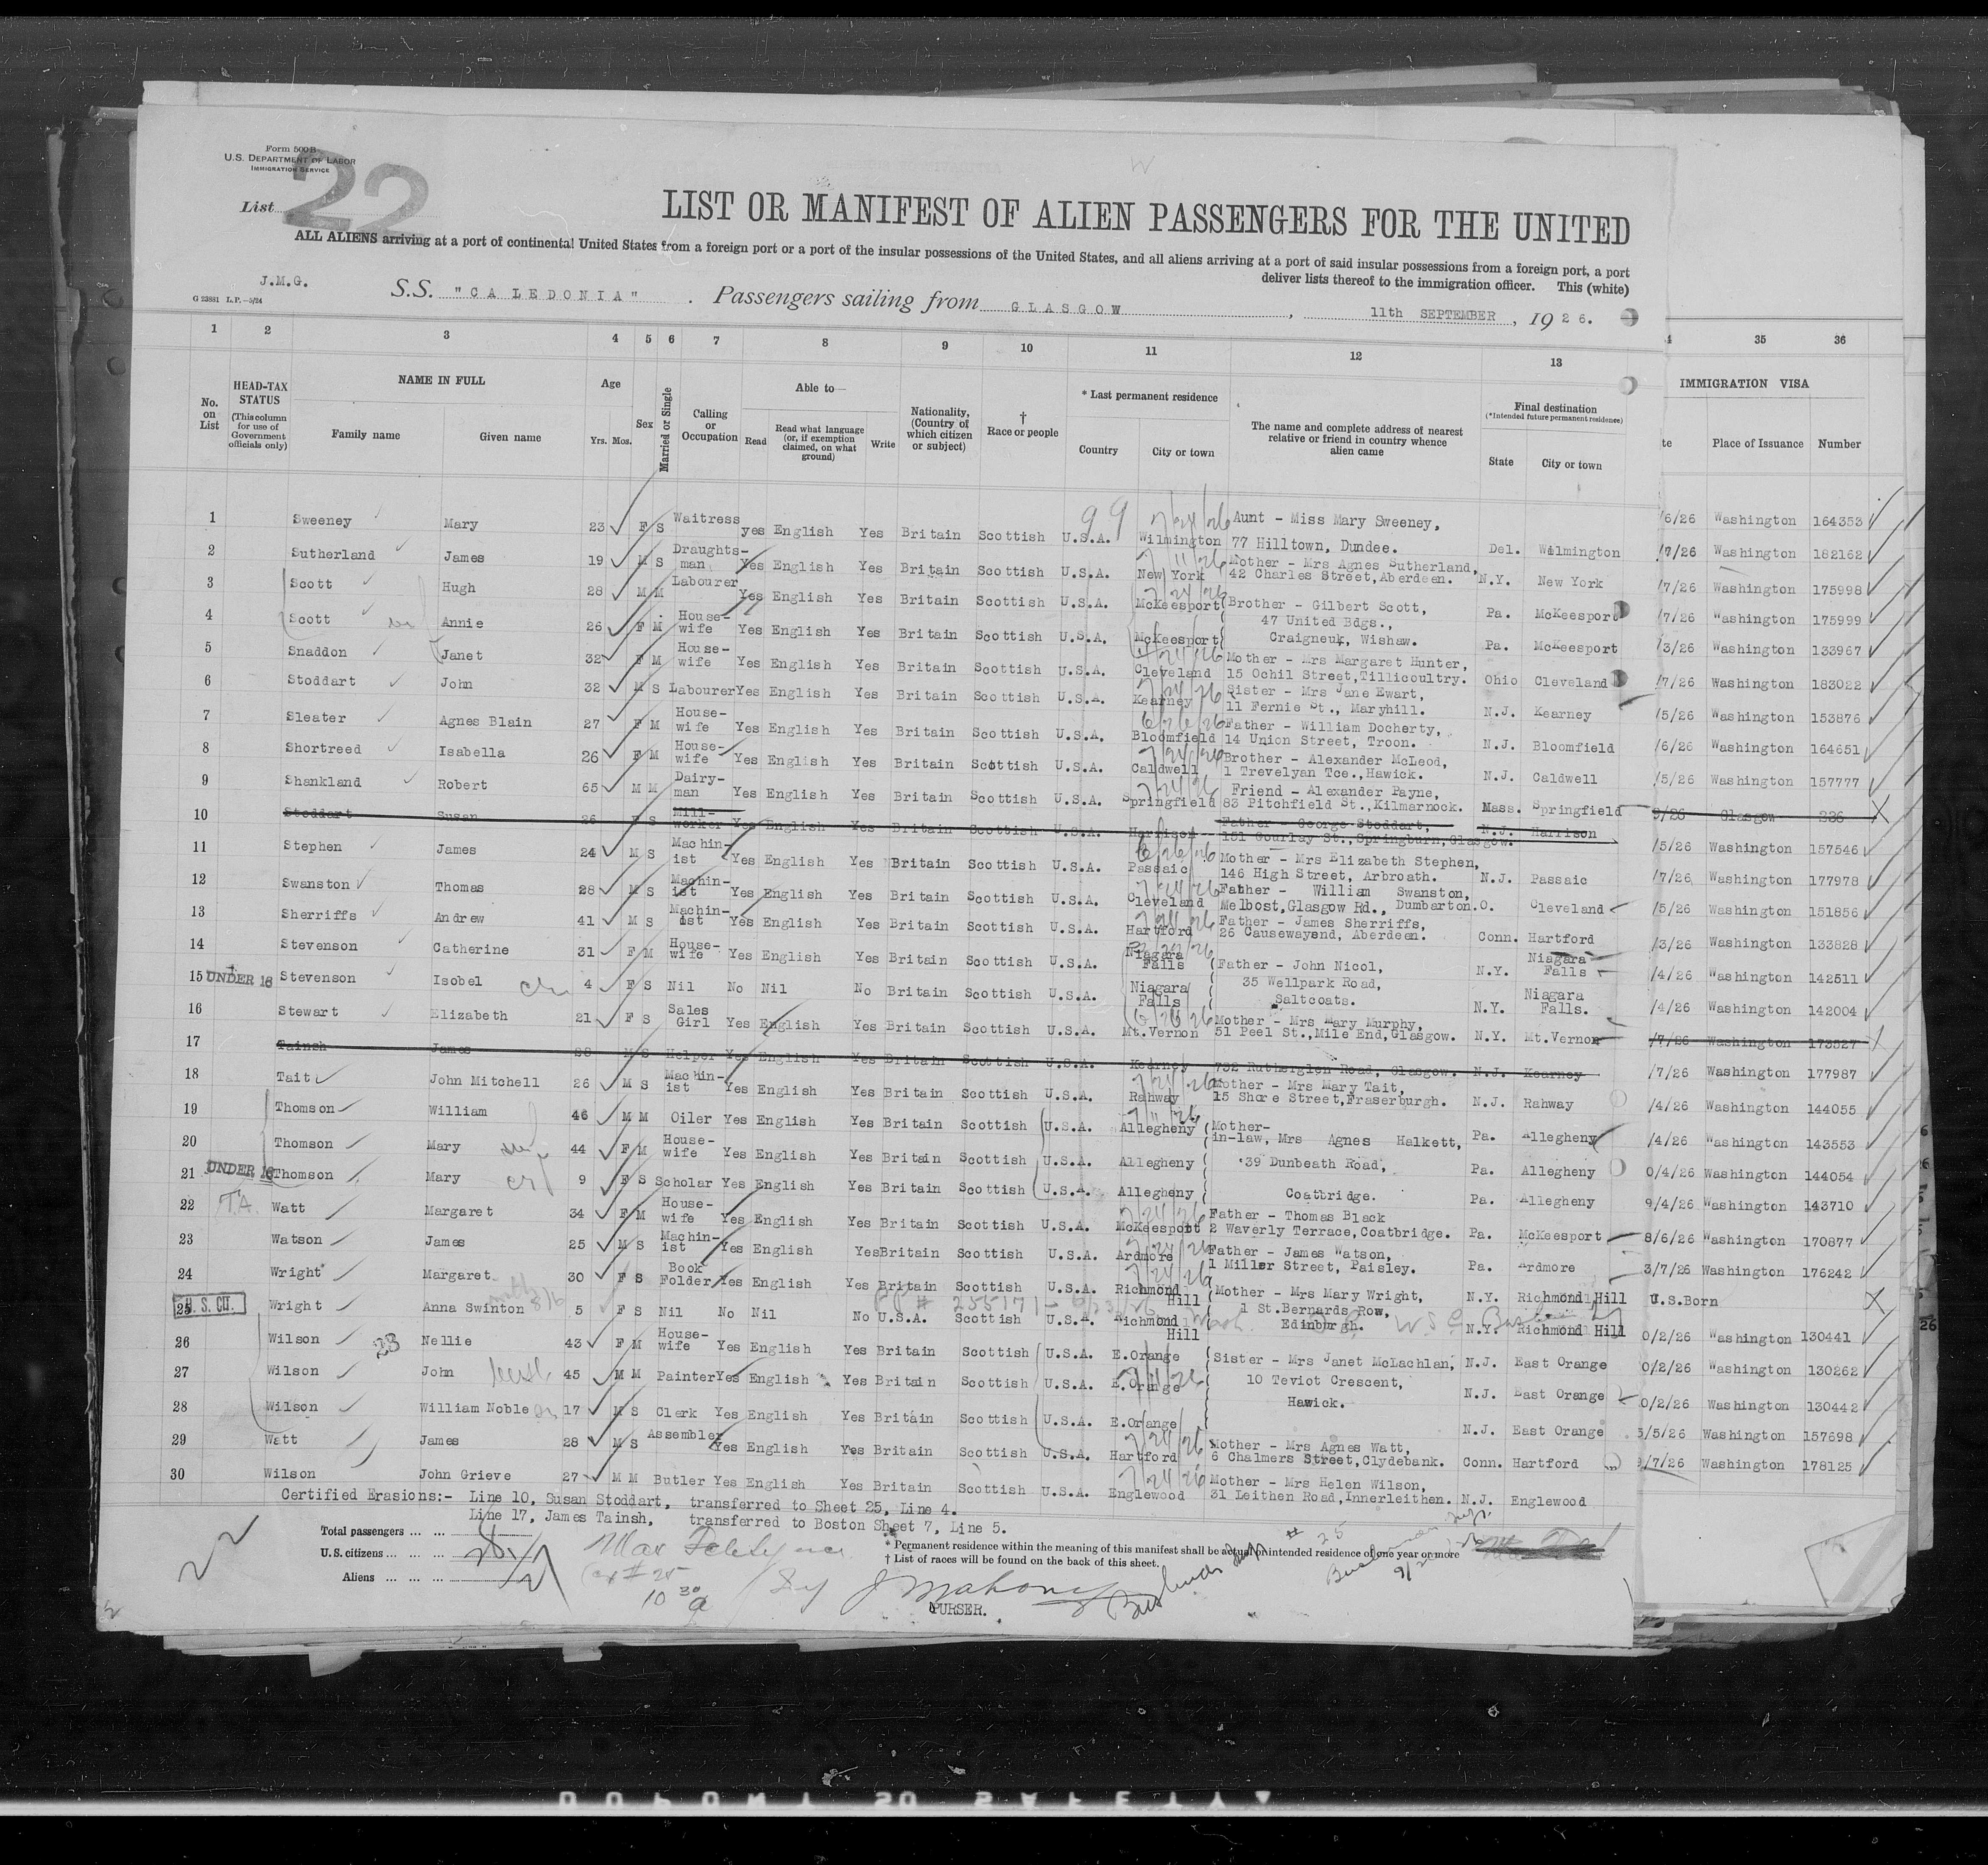 Form 500 B
U.S. DEPARTMENT OF LABOR
IMMIGRATION SERVICE
List 22
LIST OR MANIFEST OF ALIEN PASSENGERS FOR THE UNITED
ALL ALIENS arriving at a port of continental United States from a foreign port or a port of the insular possessions of the United States, and all aliens arriving at a port of said insular possessions from a foreign port, a port
deliver lists thereof to the immigration officer. This (white)
J.M.G.
G 23881 L.P.—5/24
S.S. "CALEDONIA". Passengers sailing from GLASGOW, 11th SEPTEMBER, 1926.
1 2 3 4 5 6 7 8 9 10 11 12 13 35 36
No. on List
HEAD-TAX STATUS
(This column for use of Government officials only)
NAME IN FULL
Family name Given name
Age
Yrs. Mos.
Sex
Married or Single
Calling or Occupation
Able to—
Read
Read what language (or, if exemption claimed, on what ground)
Write
Nationality, (Country of which citizen or subject)
† Race or people
* Last permanent residence
Country City or town
The name and complete address of nearest relative or friend in country whence alien came
Final destination
(*Intended future permanent residence)
State City or town
IMMIGRATION VISA
Place of Issuance Number
1 Sweeney Mary 23 F S Waitress yes English Yes Britain Scottish U.S.A. Wilmington Aunt - Miss Mary Sweeney, 77 Hilltown, Dundee. Del. Wilmington /6/26 Washington 164353
2 Sutherland James 19 M S Draughts-man Yes English Yes Britain Scottish U.S.A. New York Mother - Mrs Agnes Sutherland, 42 Charles Street, Aberdeen. N.Y. New York /7/26 Washington 182162
3 Scott Hugh 28 M M Labourer Yes English Yes Britain Scottish U.S.A. McKeesport Brother - Gilbert Scott, 47 United Bdgs., Craigneuk, Wishaw. Pa. McKeesport /7/26 Washington 175998
4 Scott Annie 26 F M House-wife Yes English Yes Britain Scottish U.S.A. McKeesport Pa. McKeesport /7/26 Washington 175999
5 Snaddon Janet 32 F M House-wife Yes English Yes Britain Scottish U.S.A. Cleveland Mother - Mrs Margaret Hunter, 15 Ochil Street, Tillicoultry. Ohio Cleveland /3/26 Washington 133967
6 Stoddart John 32 M S Labourer Yes English Yes Britain Scottish U.S.A. Kearney Sister - Mrs Jane Ewart, 11 Fernie St., Maryhill. N.J. Kearney /7/26 Washington 183022
7 Sleater Agnes Blain 27 F M House-wife Yes English Yes Britain Scottish U.S.A. Bloomfield Father - William Docherty, 14 Union Street, Troon. N.J. Bloomfield /5/26 Washington 153876
8 Shortreed Isabella 26 F M House-wife Yes English Yes Britain Scottish U.S.A. Caldwell Brother - Alexander McLeod, 1 Trevelyan Tce., Hawick. N.J. Caldwell /6/26 Washington 164651
9 Shankland Robert 65 M M Dairy-man Yes English Yes Britain Scottish U.S.A. Springfield Friend - Alexander Payne, 83 Pitchfield St., Kilmarnock. Mass. Springfield /5/26 Washington 157777
10 Stoddart Susan 26 F S Mill-worker Yes English Yes Britain Scottish U.S.A. Harrison Father - George Stoddart, 151 Gourlay St., Springburn, Glasgow. N.J. Harrison 9/26 Glasgow 236
11 Stephen James 24 M S Machin-ist Yes English Yes Britain Scottish U.S.A. Passaic Mother - Mrs Elizabeth Stephen, 146 High Street, Arbroath. N.J. Passaic /5/26 Washington 157546
12 Swanston Thomas 28 M S Machin-ist Yes English Yes Britain Scottish U.S.A. Cleveland Father - William Swanston, Melbost, Glasgow Rd., Dumbarton. O. Cleveland /7/26 Washington 177978
13 Sherriffs Andrew 41 M S Machin-ist Yes English Yes Britain Scottish U.S.A. Hartford Father - James Sherriffs, 26 Causewaysnd, Aberdeen. Conn. Hartford /5/26 Washington 151856
14 Stevenson Catherine 31 F M House-wife Yes English Yes Britain Scottish U.S.A. Niagara Falls Father - John Nicol, 35 Wellpark Road, Saltcoats. N.Y. Niagara Falls /3/26 Washington 133828
15 UNDER 16 Stevenson Isobel 4 F S Nil No Nil No Britain Scottish U.S.A. Niagara Falls N.Y. Niagara Falls. /4/26 Washington 142511
16 Stewart Elizabeth 21 F S Sales Girl Yes English Yes Britain Scottish U.S.A. Mt.Vernon Mother - Mrs Mary Murphy, 51 Peel St., Mile End, Glasgow. N.Y. Mt.Vernon /4/26 Washington 142004
17 Tainsh James 28 M S Helper Yes English Yes Britain Scottish U.S.A. Kearney 732 Rutherglen Road, Glasgow. N.J. Kearney /7/26 Washington 173527
18 Tait John Mitchell 26 M S Machin-ist Yes English Yes Britain Scottish U.S.A. Rahway Mother - Mrs Mary Tait, 15 Shore Street, Fraserburgh. N.J. Rahway /7/26 Washington 177987
19 Thomson William 46 M M Oiler Yes English Yes Britain Scottish U.S.A. Allegheny Mother-in-law, Mrs Agnes Halkett, 39 Dunbeath Road, Coatbridge. Pa. Allegheny /4/26 Washington 144055
20 Thomson Mary 44 F M House-wife Yes English Yes Britain Scottish U.S.A. Allegheny Pa. Allegheny /4/26 Washington 143553
21 UNDER 16 Thomson Mary 9 F S Scholar Yes English Yes Britain Scottish U.S.A. Allegheny Pa. Allegheny 0/4/26 Washington 144054
22 T.A. Watt Margaret 34 F M House-wife Yes English Yes Britain Scottish U.S.A. McKeesport Father - Thomas Black 2 Waverly Terrace, Coatbridge. Pa. McKeesport 9/4/26 Washington 143710
23 Watson James 25 M S Machin-ist Yes English Yes Britain Scottish U.S.A. Ardmore Father - James Watson, 1 Miller Street, Paisley. Pa. Ardmore 8/6/26 Washington 170877
24 Wright Margaret 30 F S Book Folder Yes English Yes Britain Scottish U.S.A. Richmond Hill Mother - Mrs Mary Wright, 1 St.Bernards Row, Edinburgh. N.Y. Richmond Hill 3/7/26 Washington 176242
25 U.S. CIT. Wright Anna Swinton 5 F S Nil No Nil No U.S.A. Scottish U.S.A. Richmond Hill N.Y. Richmond Hill U.S.Born
26 Wilson Nellie 43 F M House-wife Yes English Yes Britain Scottish U.S.A. E.Orange Sister - Mrs Janet McLachlan, 10 Teviot Crescent, Hawick. N.J. East Orange 0/2/26 Washington 130441
27 Wilson John 45 M M Painter Yes English Yes Britain Scottish U.S.A. E.Orange N.J. East Orange 0/2/26 Washington 130262
28 Wilson William Noble 17 M S Clerk Yes English Yes Britain Scottish U.S.A. E.Orange N.J. East Orange 0/2/26 Washington 130442
29 Watt James 28 M S Assembler Yes English Yes Britain Scottish U.S.A. Hartford Mother - Mrs Agnes Watt, 6 Chalmers Street, Clydebank. Conn. Hartford 5/5/26 Washington 157698
30 Wilson John Grieve 27 M M Butler Yes English Yes Britain Scottish U.S.A. Englewood Mother - Mrs Helen Wilson, 31 Leithen Road, Innerleithen. N.J. Englewood 9/7/26 Washington 178125
Certified Erasions:- Line 10, Susan Stoddart, transferred to Sheet 25, Line 4.
Line 17, James Tainsh, transferred to Boston Sheet 7, Line 5.
Total passengers
U.S. citizens
Aliens
* Permanent residence within the meaning of this manifest shall be actual or intended residence of one year or more
† List of races will be found on the back of this sheet.
J Mahoney
PURSER.